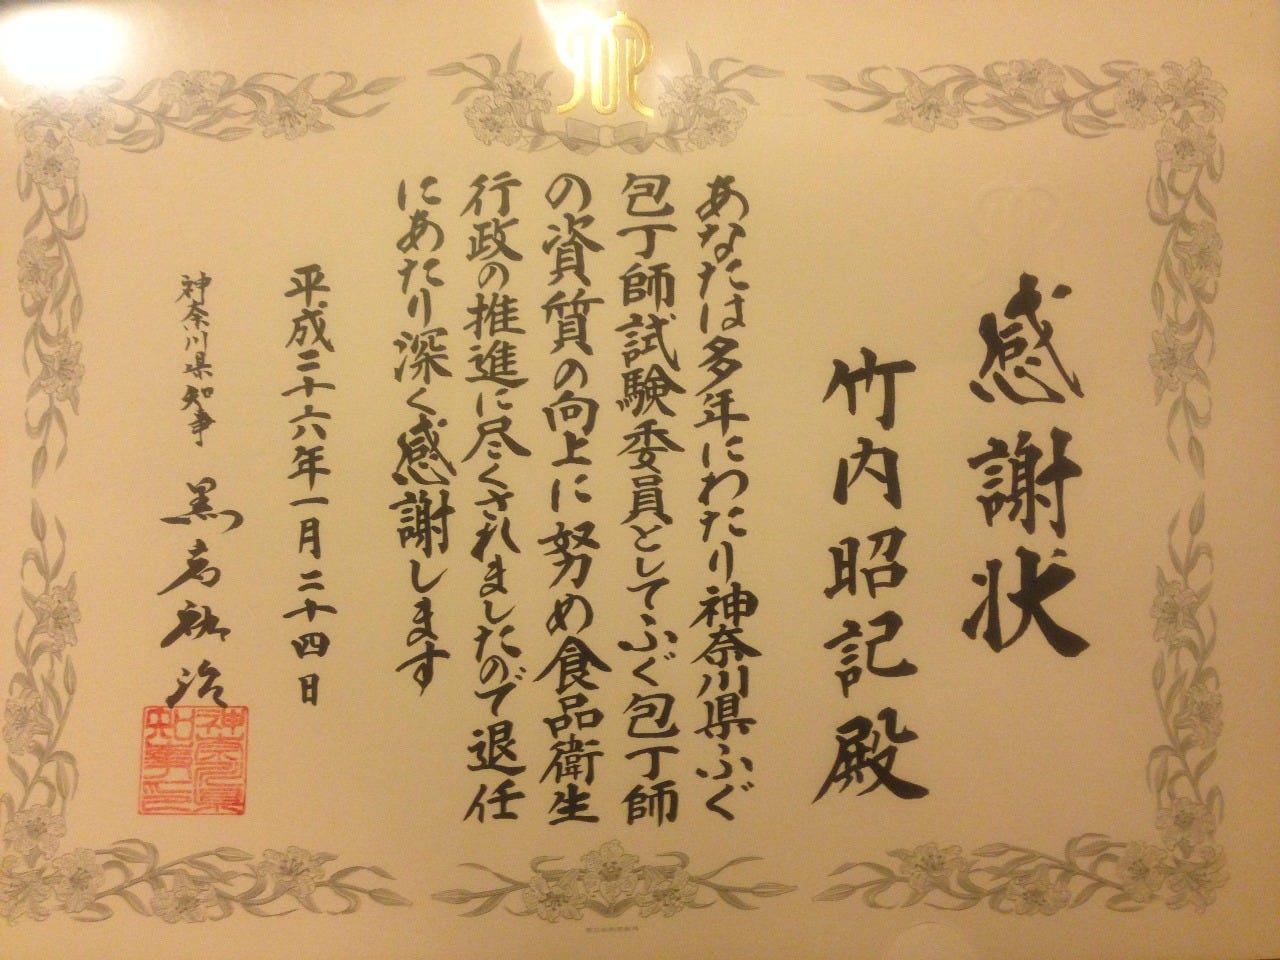 感謝状
竹内昭記殿
あなたは多年にわたり神奈川県ふぐ
包丁師試験委員としてふぐ包丁師
の資質の向上に努め食品衛生
行政の推進に尽くされましたので退任
にあたり深く感謝します
平成二十六年一月二十四日
神奈川県知事 黒岩祐治
神奈川県
知事之印